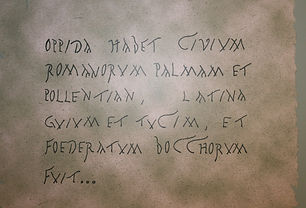 OPPIDA HABET CIVIUM
ROMANORVM PALMAM ET
POLLENTIAN, LATINA
GUIUM ET TUCIM, ET
FOEDERATUM BOCCHORUM
FUIT...